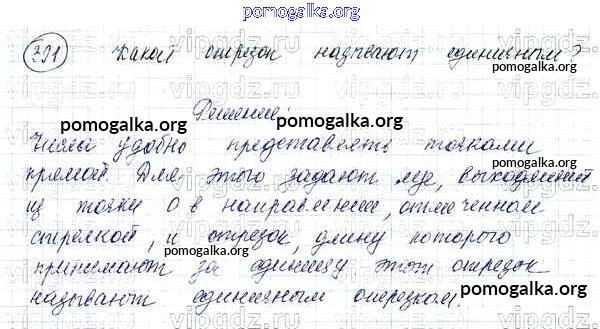 pomogalka.org
391 Какой отрезок называют единичным?
pomogalka.org
Решение:
pomogalka.org pomogalka.org
Числа удобно представлять точками
прямой. Для этого задают луч, выходящий
pomogalka.org
из точки О в направлении, отмеченном
стрелкой, и отрезок, длину которого
pomogalka.org pomogalka.org
принимают за единицу этот отрезок
называют единичным отрезком.
pomogalka.org